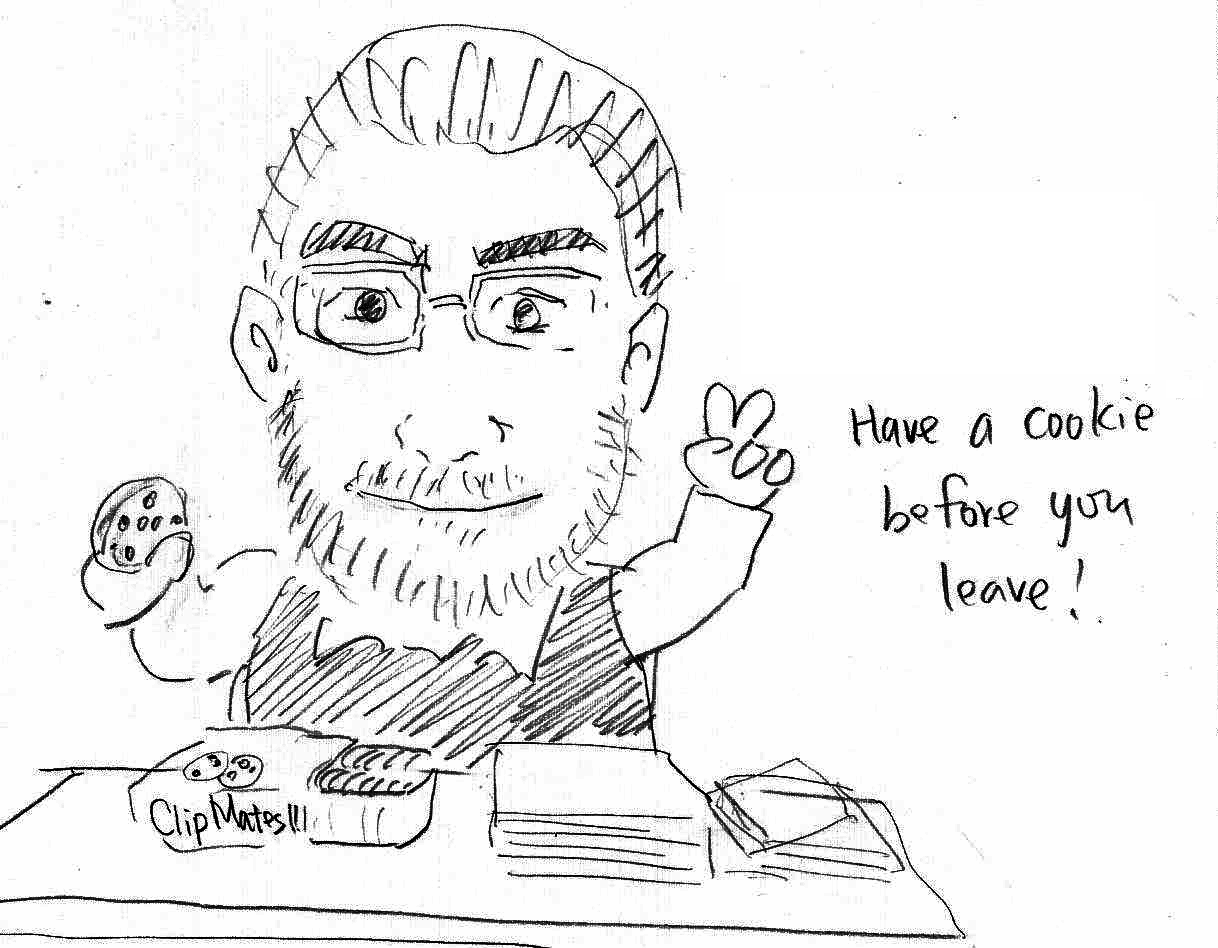 Have a cookie
before you
leave!
ClipMates!!!